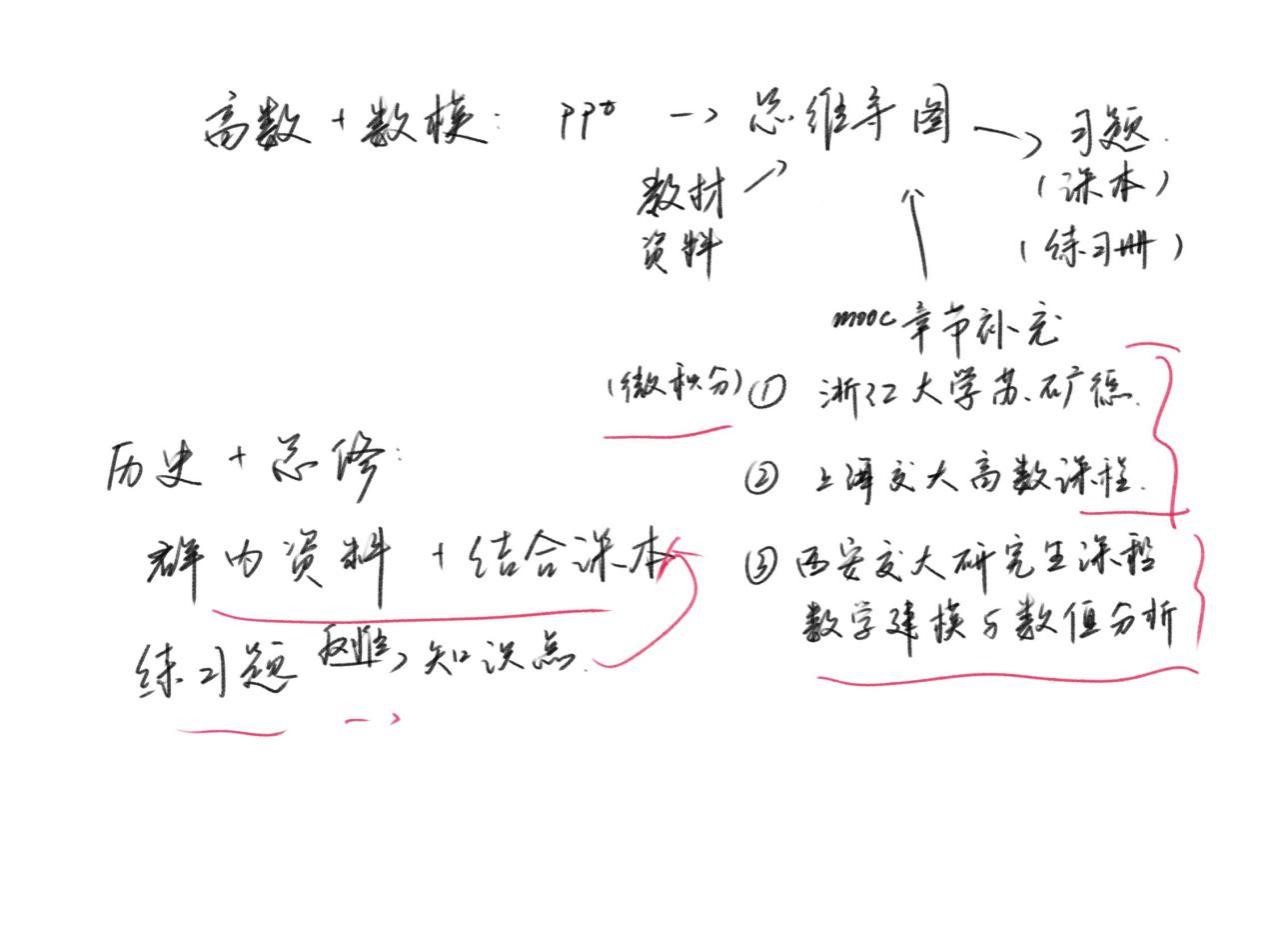 高数 + 数模: ppt → 思维导图 → 习题.
教材
资料
(课本)
(练习册)
mooc 章节补充
(微积分) ① 浙江大学苏.矿德.
② 上海交大高数课程.
③ 西安交大研究生课程
数学建模与数值分析
历史 + 思修:
群内资料 + 结合课本
练习题 反推→ 知识点.